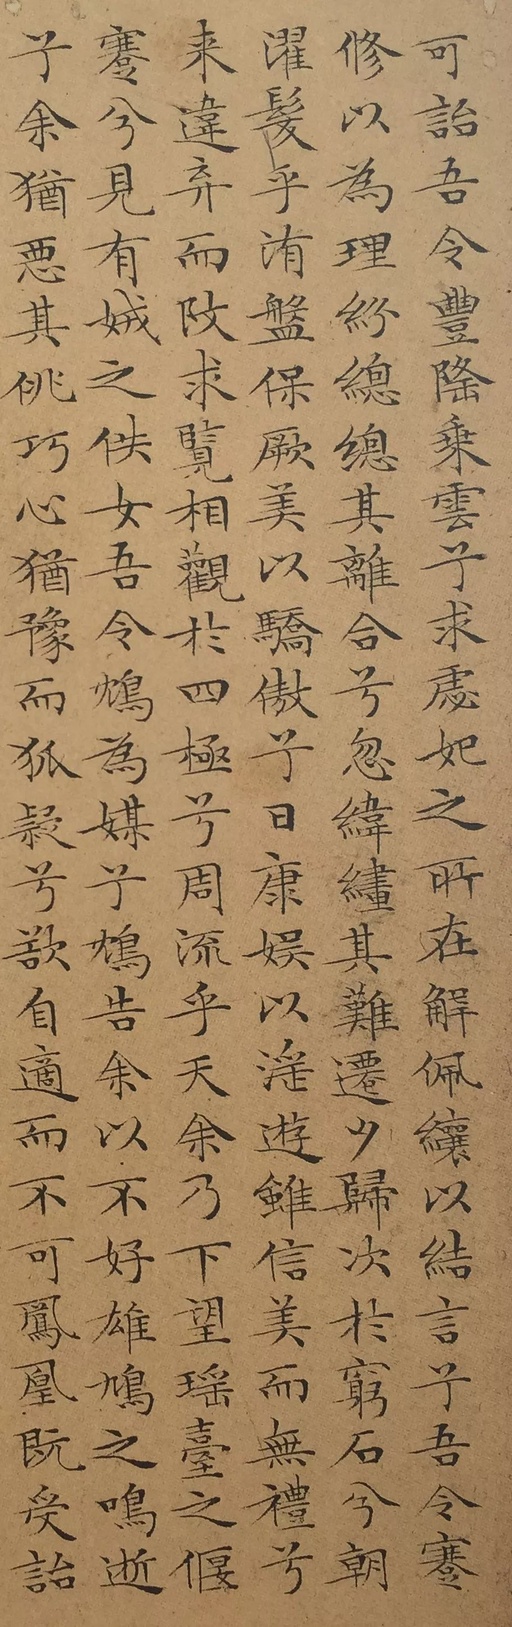 可詒吾令豐隆乘雲兮求虙妃之所在解佩纕以結言兮吾令蹇
修以為理紛總總其離合兮忽緯繣其難遷夕歸次於窮石兮朝
濯髮乎洧盤保厥美以驕傲兮日康娛以淫遊雖信美而無禮兮
来違弃而改求覽相觀於四極兮周流乎天余乃下望瑶臺之偃
蹇兮見有娀之佚女吾令鴆為媒兮鴆告余以不好雄鳩之鳴逝
兮余猶惡其佻巧心猶豫而狐疑兮欲自適而不可鳳凰既受詒